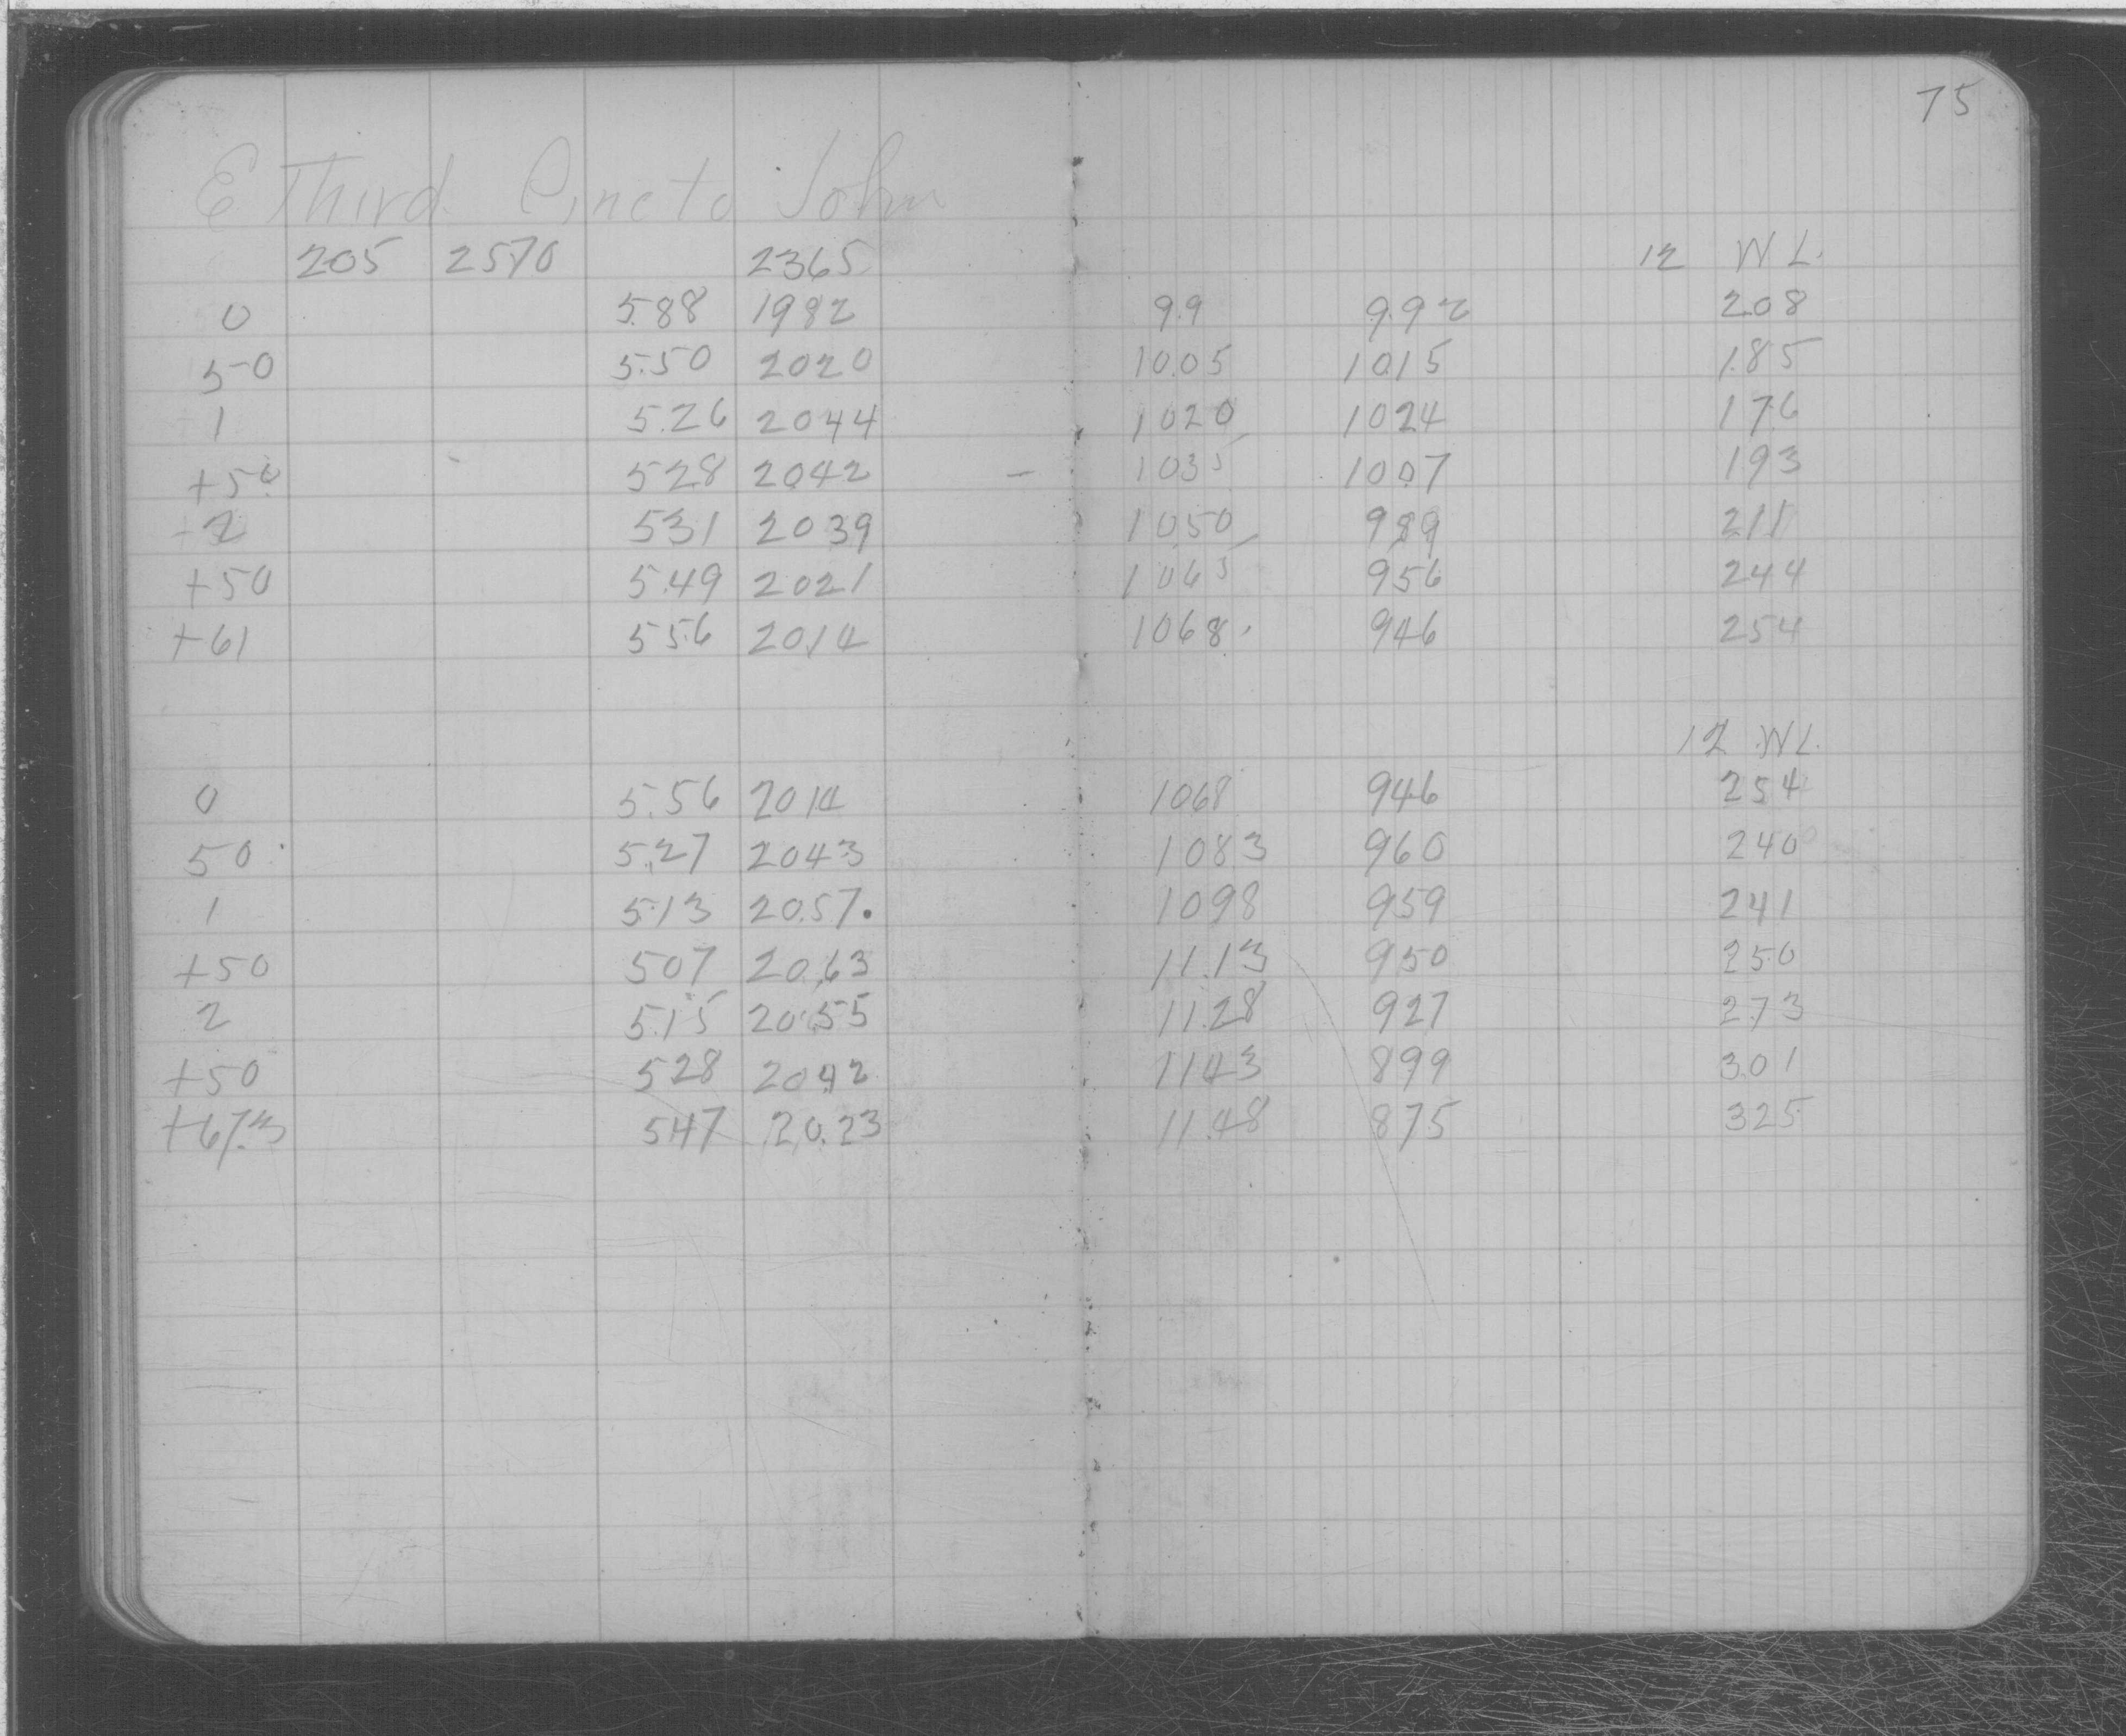 75
E Third Pine to John
205 2570 2365 12 W L.
0 5.88 1982 9.9 9.92 208
50 5.50 2020 10.05 1015 1.85
1 5.26 2044 1020 1024 176
+50 528 2042 - 1035 1007 193
2 531 2039 1050 989 211
+50 5.49 2021 1065 956 244
+61 556 2014 1068. 946 254
12 WL.
0 5.56 2014 1068 946 254
50. 5.27 2043 1083 960 240
1 5.13 20.57. 1098 959 241
+50 507 20.63 11.13 950 250
2 5.15 20.55 11.28 927 273
+50 528 2042 1143 899 301
+67.3 547 20.23 11.48 875 325